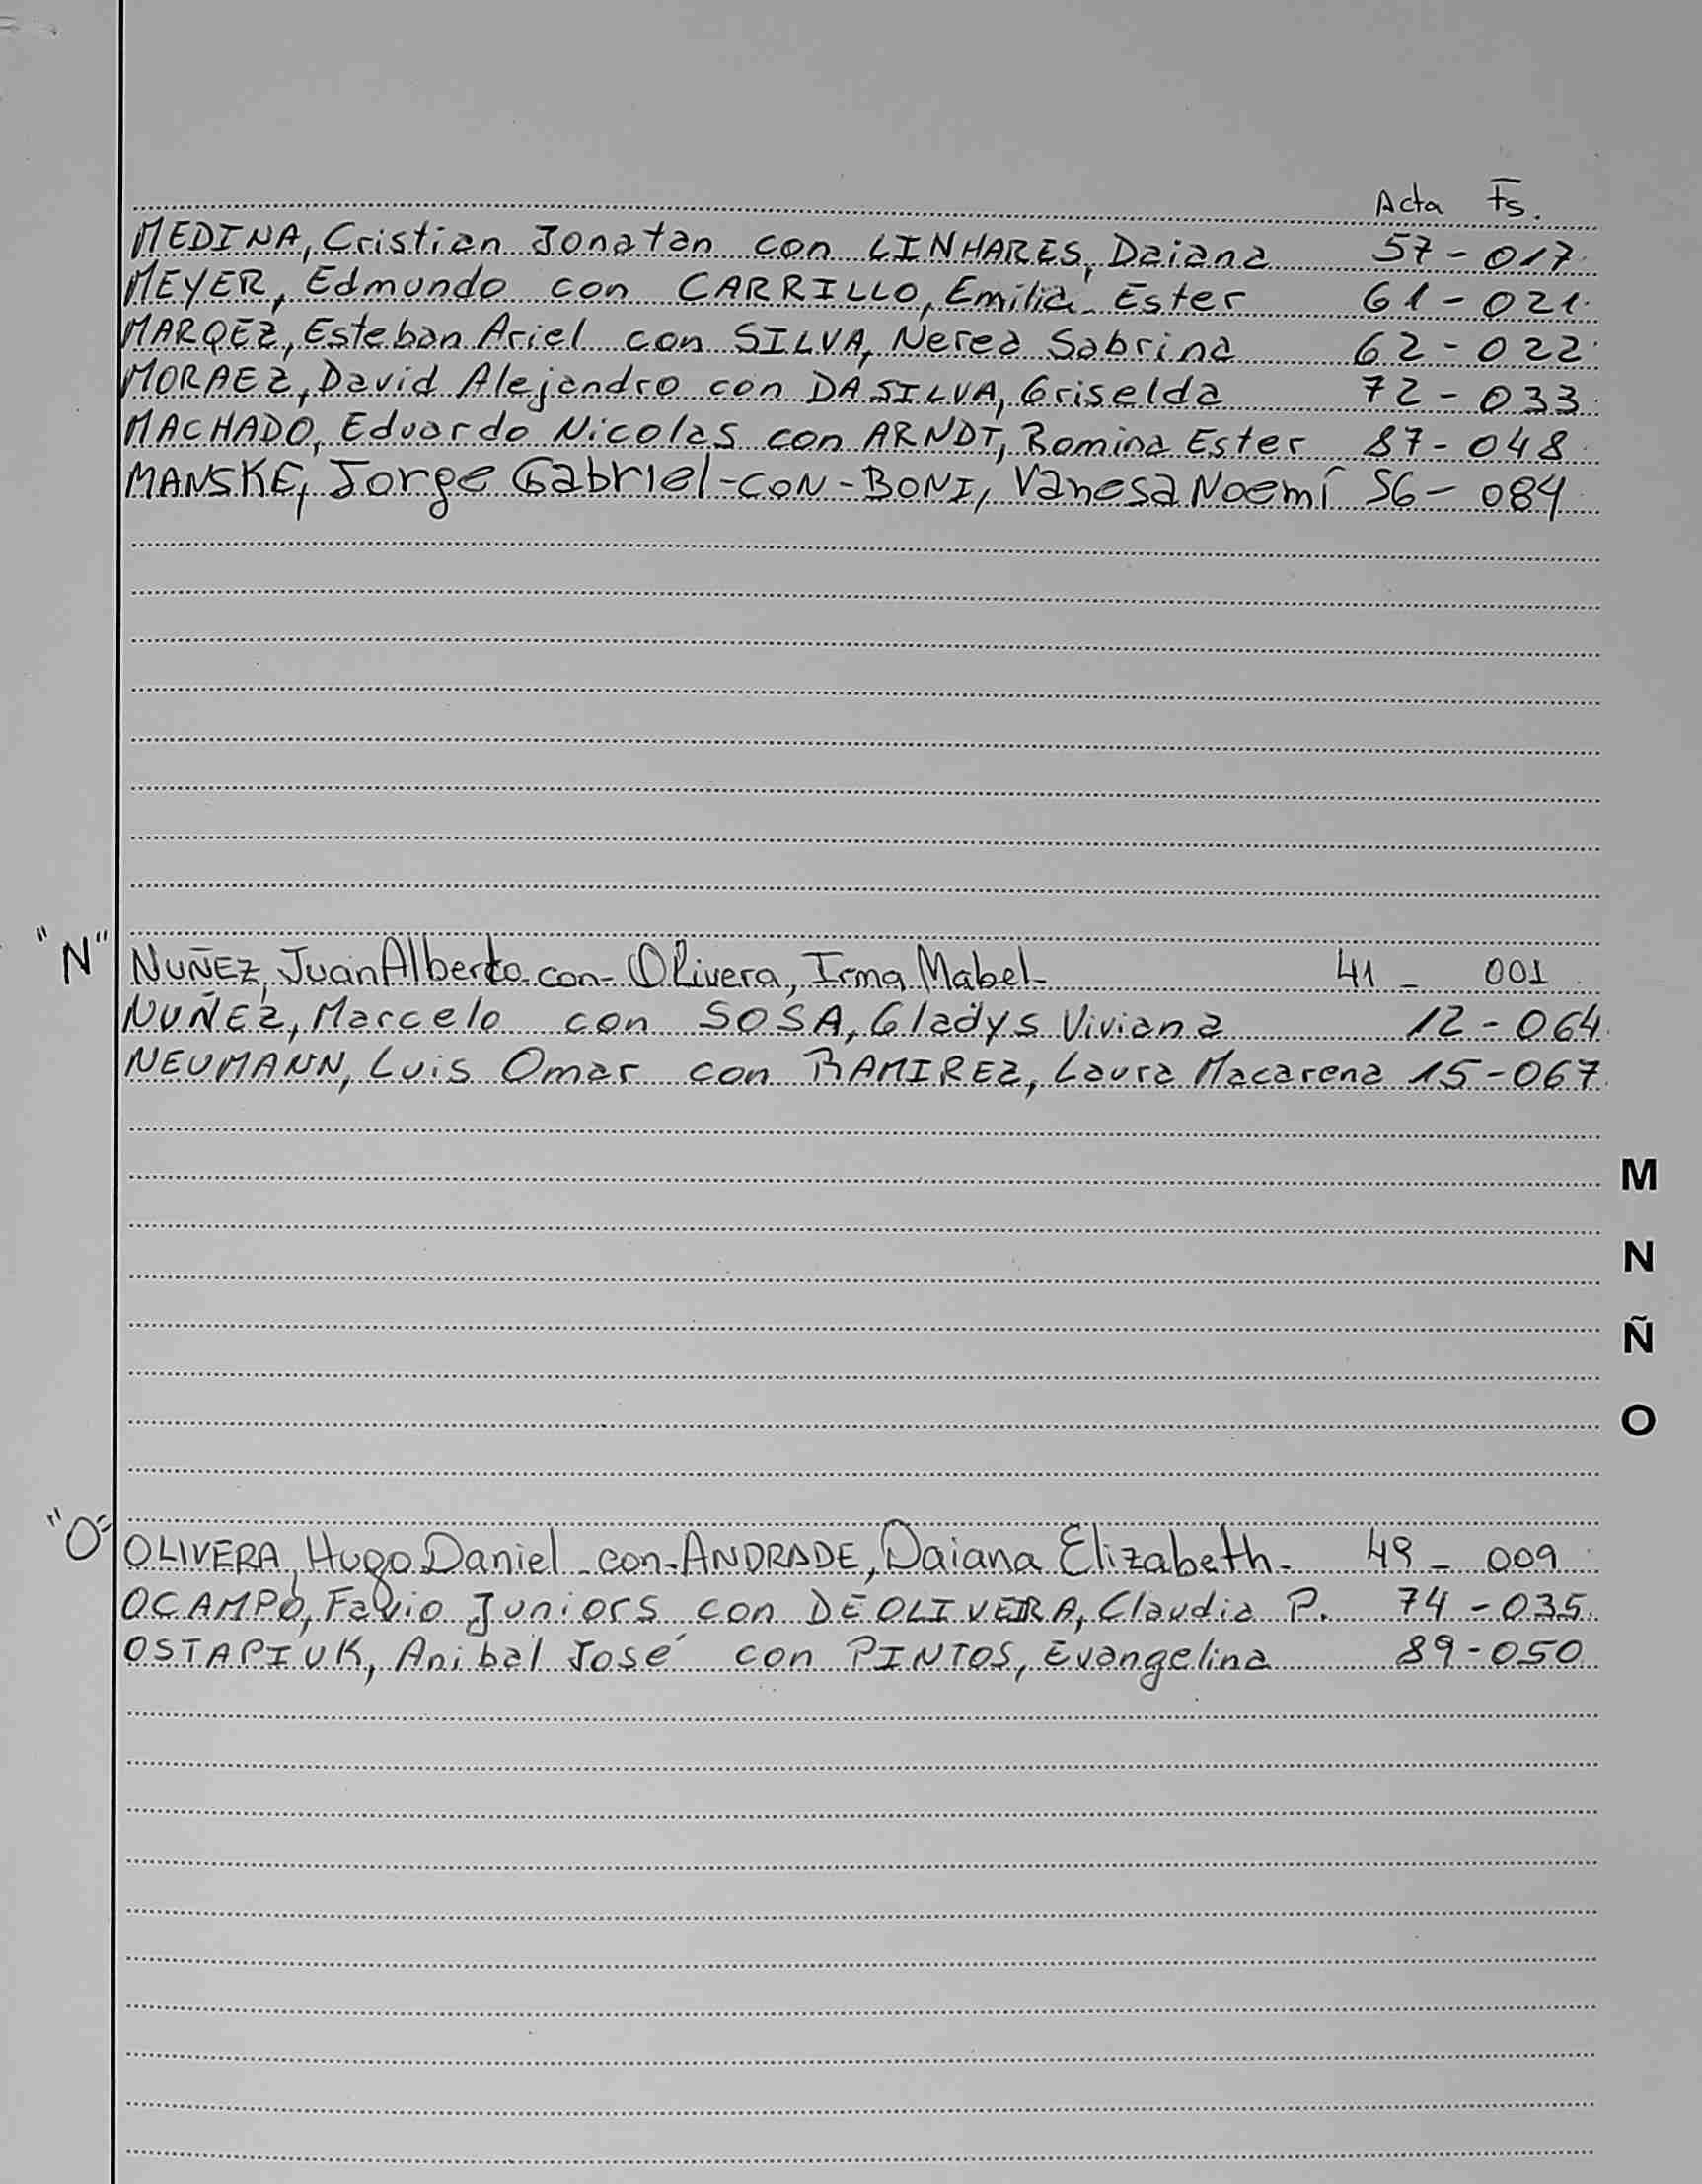 Acta Fs.
MEDINA, Cristian Jonatan con LINHARES, Daiana 57-017
MEYER, Edmundo con CARRILLO, Emilia Ester 61-021
MARQEZ, Esteban Ariel con SILVA, Nerea Sabrina 62-022
MORAEZ, David Alejandro con DA SILVA, Griselda 72-033
MACHADO, Eduardo Nicolas con ARNDT, Romina Ester 87-048
MANSKE, Jorge Gabriel-CON-BONI, Vanesa Noemí 56-084
"N" NUÑEZ, Juan Alberto-con-Olivera, Irma Mabel- 41 - 001
NUÑEZ, Marcelo con SOSA, Gladys Viviana 12-064
NEUMANN, Luis Omar con RAMIREZ, Laura Macarena 15-067
M
N
Ñ
O
"O" OLIVERA, Hugo Daniel-con-ANDRADE, Daiana Elizabeth- 49 - 009
OCAMPO, Favio Juniors con DE OLIVEIRA, Claudia P. 74-035
OSTAPIUK, Anibal José con PINTOS, Evangelina 89-050